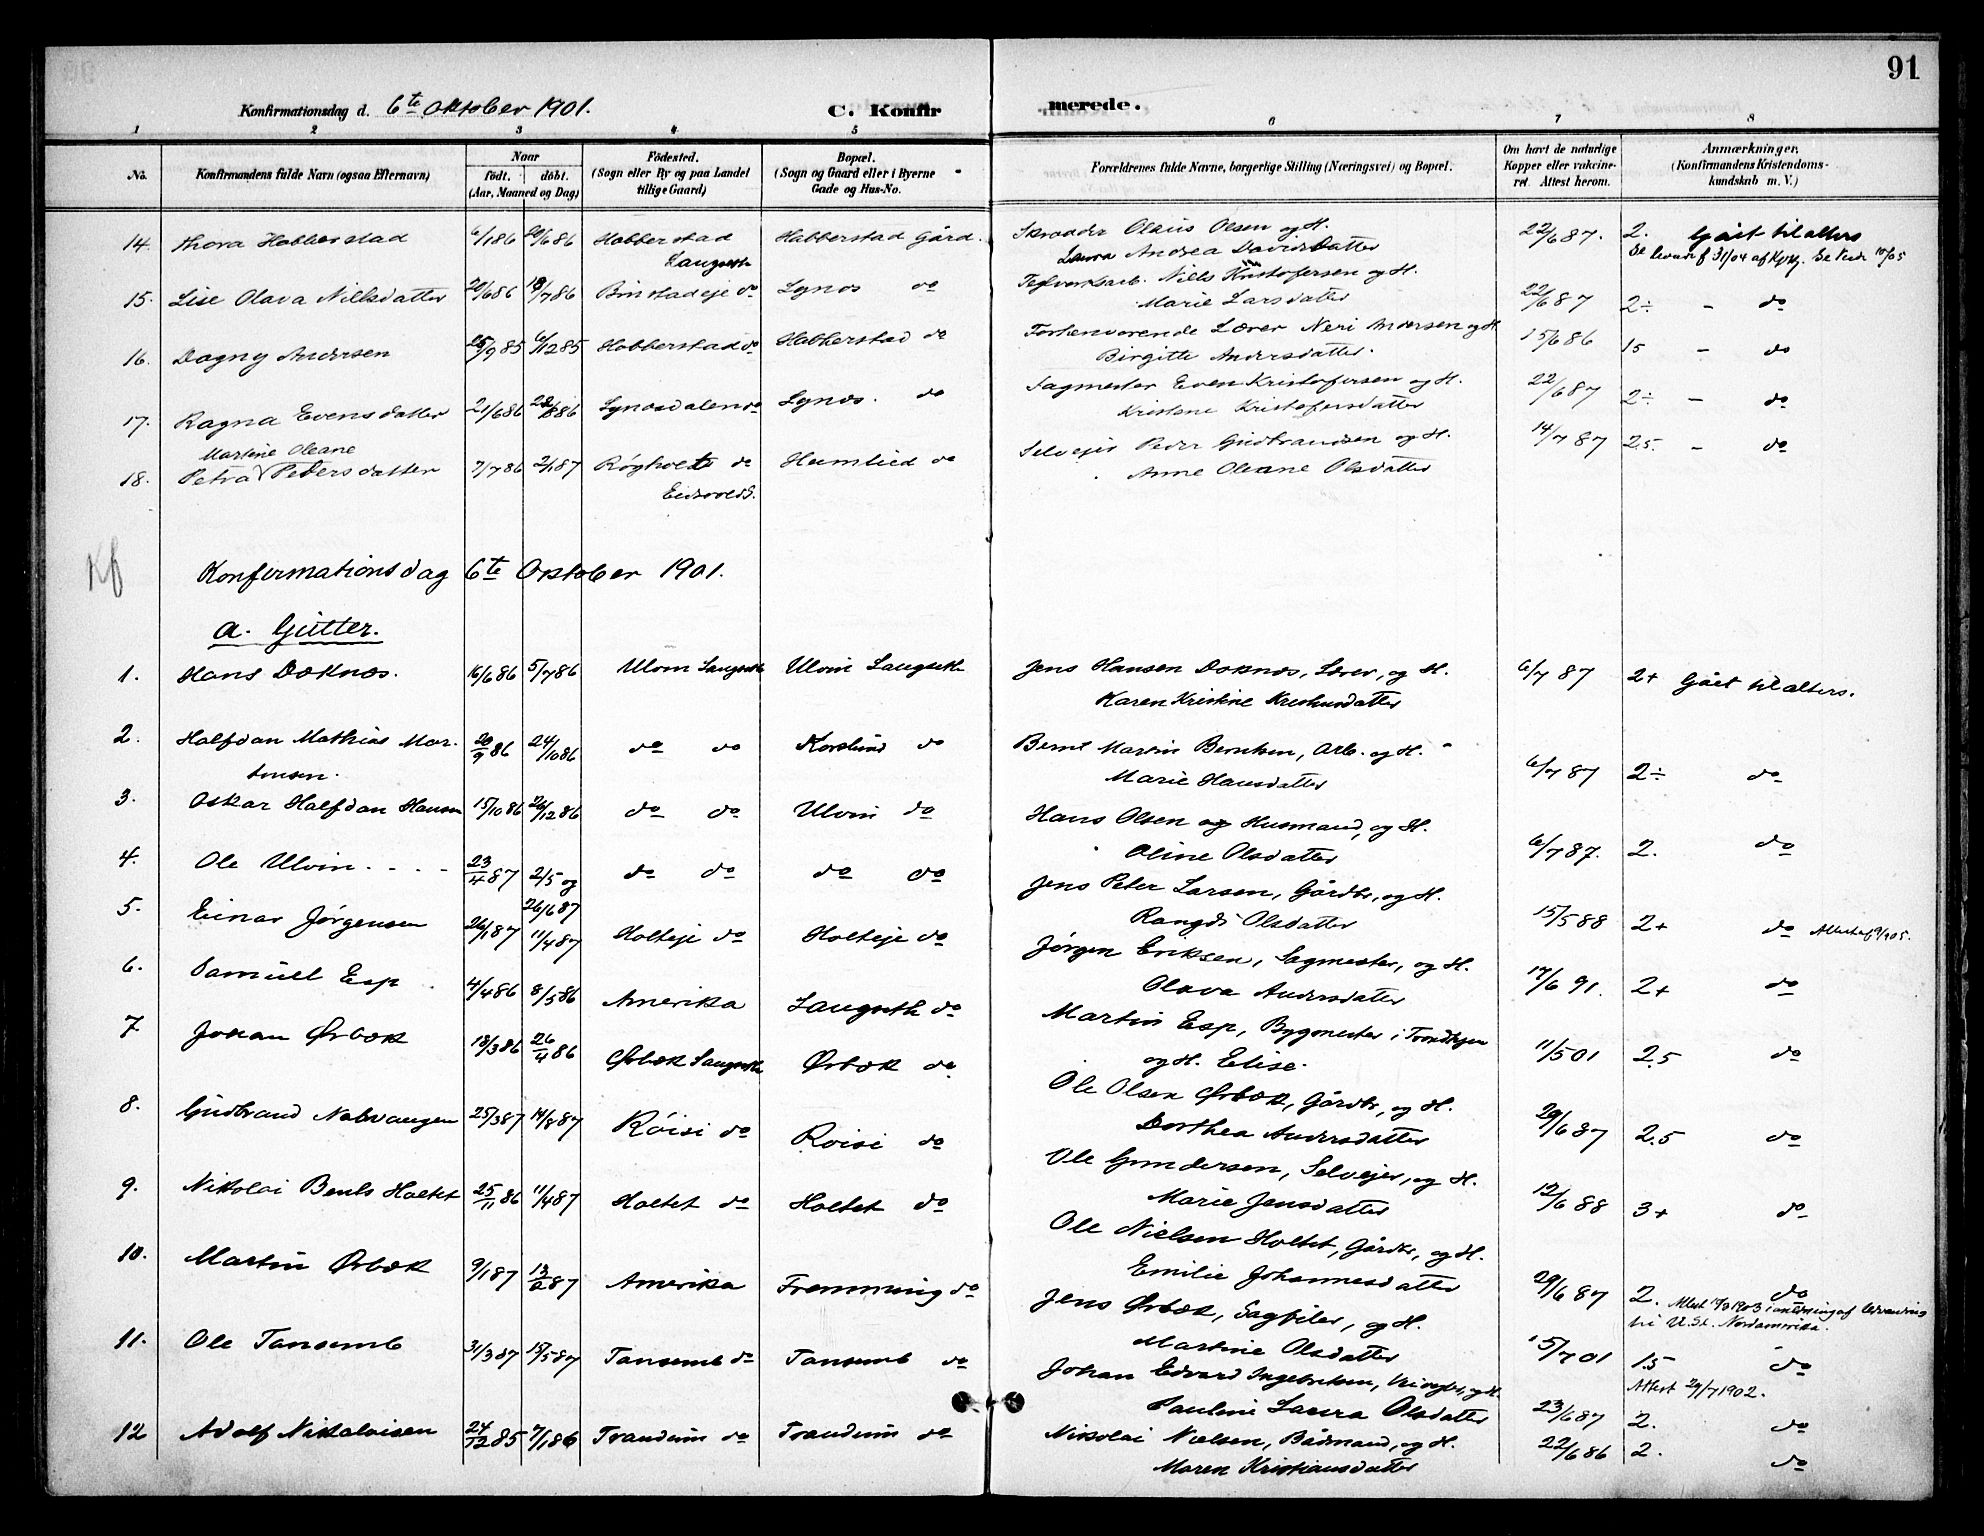 91
Konfirmationsdag d. 6te oktober 1901. C. Konfirmerede.
1 2 3 4 5 6 7 8
No. Konfirmandens fulde Navn (ogsaa Efternavn) Naar født. døbt. (Aar, Maaned og Dag) Fødested. (Sogn eller By og paa Landet tillige Gaard) Bopæl. (Sogn og Gaard eller i Byerne Gade og Hus-No. Forældrenes fulde Navne, borgerlige Stilling (Næringsvei) og Bopæl. Om havt de naturlige Kopper eller vaccineret. Attest herom. Anmærkninger. (Konfirmandens Kristendomskundskab m. V.)
14. Thora Habberstad 6/1 86 20/6 86 Habberstad Langseth Habberstad Gård. Skrædder Olaus Olsen og H. 22/6 87. 2. Gået til alters
Laura Andrea Davidsdatter
15. Lise Olava Nilsdatter 20/6 86 18/7 86 Binstadeje do Lynæs do Teglverksarb. Niels Kristofersen og H.
Marie Larsdatter 22/6 87 2÷ - do
16. Dagny Andersen 25/9 85 6/12 85 Habberstad do Habberstad do Forhenværende Lærer Neri Andersen og H.
Birgitte Andersdatter. 15/6 86 15 - do
17. Ragna Evensdatter 21/6 86 22/8 86 Lynæsdalen do Lynæs. do Sagmester Even Kristofersen og H.
Kristene Kristofersdatter 22/6 87 2÷ - do
Martine Oleane
18. Petra Pedersdatter 7/7 86 2/1 87 Røgholte do Eidsvold S. Humlied do Selvejer Peder Gudbrandsen og H. 14/7 87 2.5. - do
Anne Oleane Olsdatter
Kf Konfirmationsdag 6te Oktober 1901.
a. Gutter.
1. Hans Dæknæs. 16/6 86 5/7 86 Ulvin Langseth Ulvin Langseth Jens Hansen Dæknæs, Lærer, og H. 6/7 87 2+ Gået til alters.
Karen Kristine
2. Halfdan Mathias Mortensen. 20/9 86 24/10 86 do do Korslund do Bernt Martin Berntsen, Arb. og H.
Marie Hansdatter 6/7 87 2÷ do
3. Oskar Halfdan Hansen 15/10 86 26/12 86 do do Ulvin do Hans Olsen og Husmand, og H.
Oline Olsdatter 6/7 87. 2. do
4. Ole Ulvin - - - 23/4 87 2/5 og 26/6 87 do do do do Jens Peter Larsen, Gårdbr, og H.
Rangdi Olsdatter 15/5 88 2+ do
5. Einar Jørgensen 26/1 87 11/4 87 Holteje do Holteje do Jørgen Eriksen, Sagmester, og H.
Olava Andersdatter 17/6 91. 2+ do
6. Samuel Esp 4/4 86 8/5 86 Amerika Langseth do Martin Esp, Bygmester i Trondhjem
og H. Elise. 11/5 01 2.5 do
7 Johan Ørbæk 18/3 86 26/4 86 Ørbæk Langseth Ørbæk do Ole Olsen Ørbæk, Gårdbr, og H.
Dorthea Andersdatter 29/6 87 2.5 do
8. Gudbrand Nabvangen 25/3 87 14/8 87 Röisi do Röisi do Ole Gundersen, Selvejer, og H.
Marie Jensdatter 12/6 88 3+ do
9. Nikolai Bents Holtet 25/11 86 11/4 87 Holtet do Holtet do Ole Nielsen Holtet, Gårdbr, og H.
Emilie Johannesdatter 29/6 87 2. do
10. Martin Ørbæk 9/1 87 13/2 87 Amerika Fremming do Jens Ørbæk, Sagfiler, og H.
Martine Olsdatter 15/7 01 1.5 do
11. Ole Tansemb 31/3 87 15/5 87 Tansemb do Tansemb do Johan Edvard Ingebretsen, og H. Attest 29/7 1902.
Pauline Laura Olsdatter 23/6 87 2. do
12 Adolf Nikolaisen 24/12 85 7/1 86 Trandum do Trandum do Nikolai Nielsen, Bådmand, og H. 22/6 86 2. do
Maren Kristiansdatter